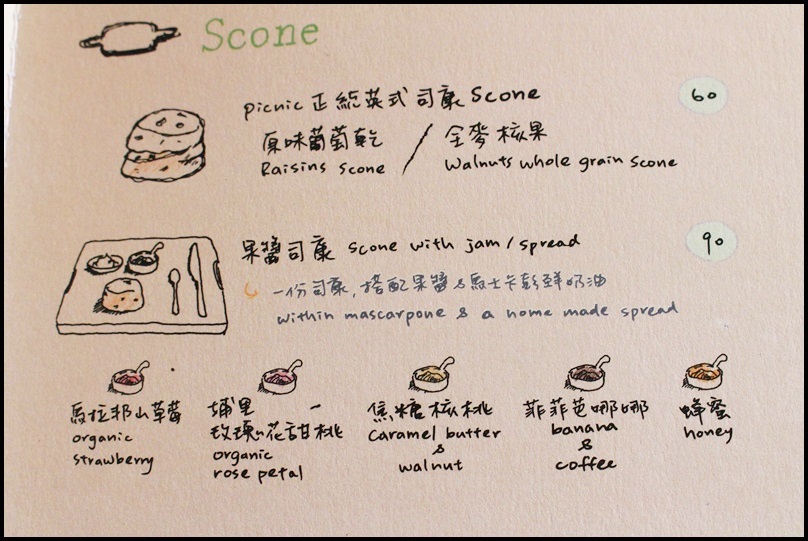 Scone
picnic 正統英式司康 Scone 60
原味葡萄乾 / 全麥核果
Raisins scone walnuts whole grain scone
果醬司康 scone with jam / spread 90
一份司康, 搭配果醬 & 馬士卡彭鮮奶油
within mascarpone & a home made spread
馬拉邦山草莓
organic
strawberry
埔里
玫瑰花甜桃
organic
rose petal
焦糖核桃
caramel butter
&
walnut
菲菲芭娜娜
banana
&
coffee
蜂蜜
honey